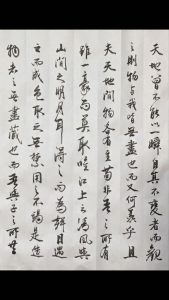 天地曾不能以一瞬自其不變者而觀
之則物與我皆無盡也而又何羨乎且
夫天地間物各有主苟非吾之所有
雖一毫而莫取唯江上之清風與
山間之明月耳得之而為聲目遇
之而成色取之無禁用之不竭是造
物者之無盡藏也而吾與子所共